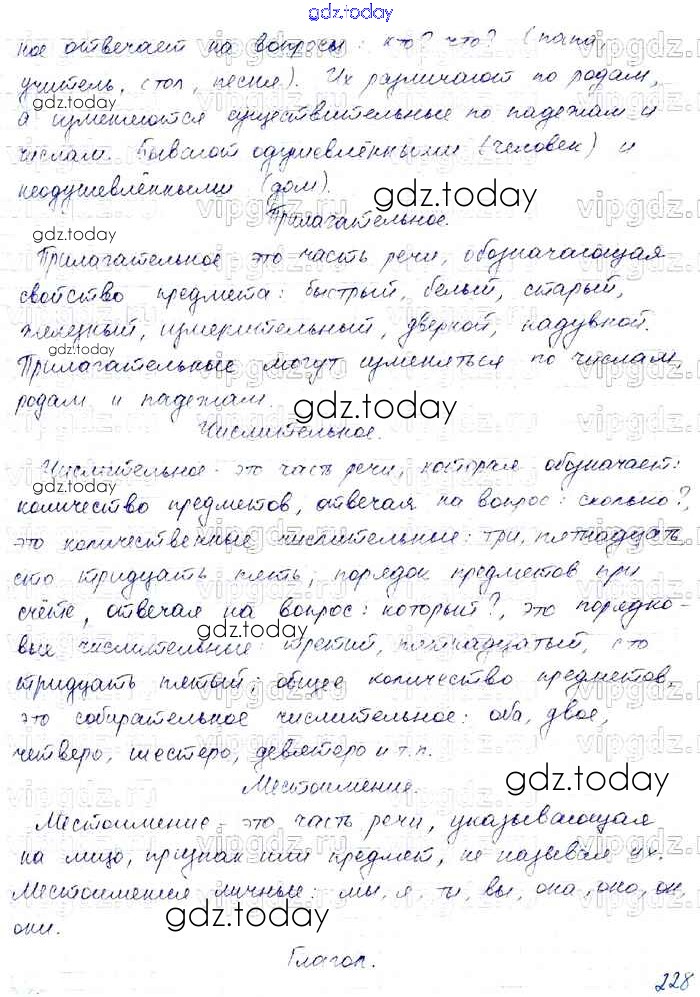 gdz.today
ное отвечает на вопросы: кто? что? (папа,
учитель, стол, песня). Их различают по родам,
gdz.today
а изменяются существительные по падежам и
числам. Бывают одушевлёнными (человек) и
неодушевлёнными (дом).
gdz.today
Прилагательное.
gdz.today
Прилагательное - это часть речи, обозначающая
свойство предмета: быстрый, белый, старый,
железный, измерительный, дверной, надувной.
gdz.today
Прилагательные могут изменяться по числам,
родам и падежам.
gdz.today
Числительное.
Числительное - это часть речи, которая обозначает:
gdz.today
количество предметов, отвечая на вопрос: сколько?,
это количественные числительные: три, пятнадцать
сто тридцать пять; порядок предметов при
счёте, отвечая на вопрос: который?, это порядко-
gdz.today
вые числительные: третий, пятнадцатый, сто
тридцать пятый; общее количество предметов,
это собирательное числительное: оба, двое,
четверо, шестеро, девятеро и т.п.
Местоимение.
gdz.today
Местоимение - это часть речи, указывающая
на лицо, признак или предмет, не называя их.
Местоимения личные: мы, я, ты, вы, она, оно, он,
gdz.today
они.
Глагол.
gdz.today
228